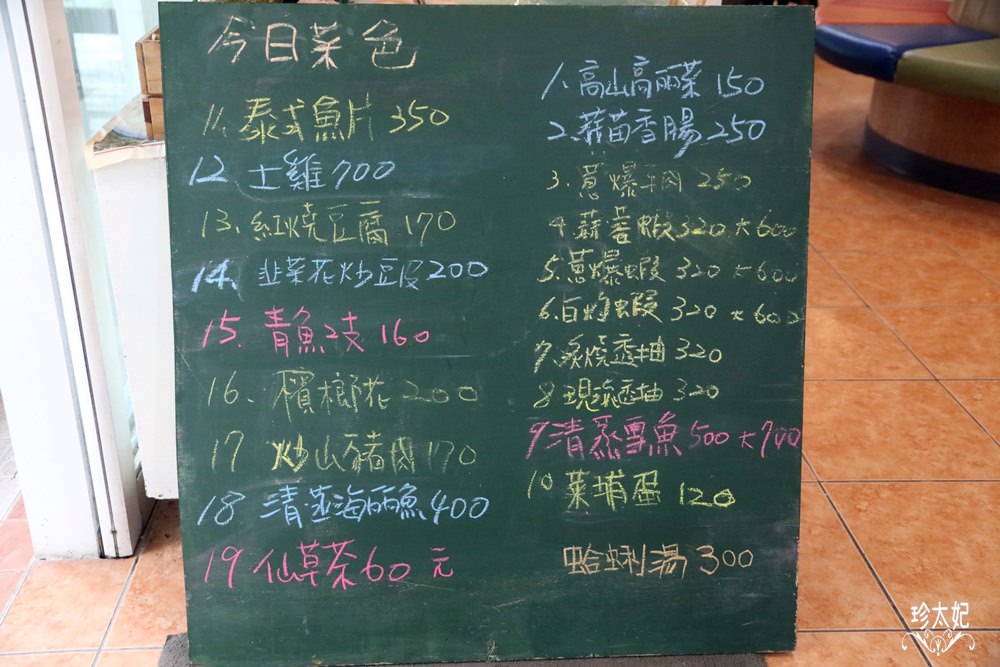 今日菜色
1. 高山高麗菜 150
2. 蒜苗香腸 250
3. 蔥爆牛肉 250
4. 蒜蓉蝦 320 大 600
5. 蔥爆蝦 320 大 600
6. 白灼蝦 320 大 600
7. 炙燒透抽 320
8 現流透抽 320
9 清蒸雪魚 500 大 700
10 菜埔蛋 120
蛤蜊湯 300
11. 泰式魚片 350
12 土雞 700
13. 紅燒豆腐 170
14. 韭菜花炒豆皮 200
15. 青魚2支 160
16. 檳榔花 200
17 炒山豬肉 170
18 清蒸海雨魚 400
19 仙草茶 60 元
珍太妃